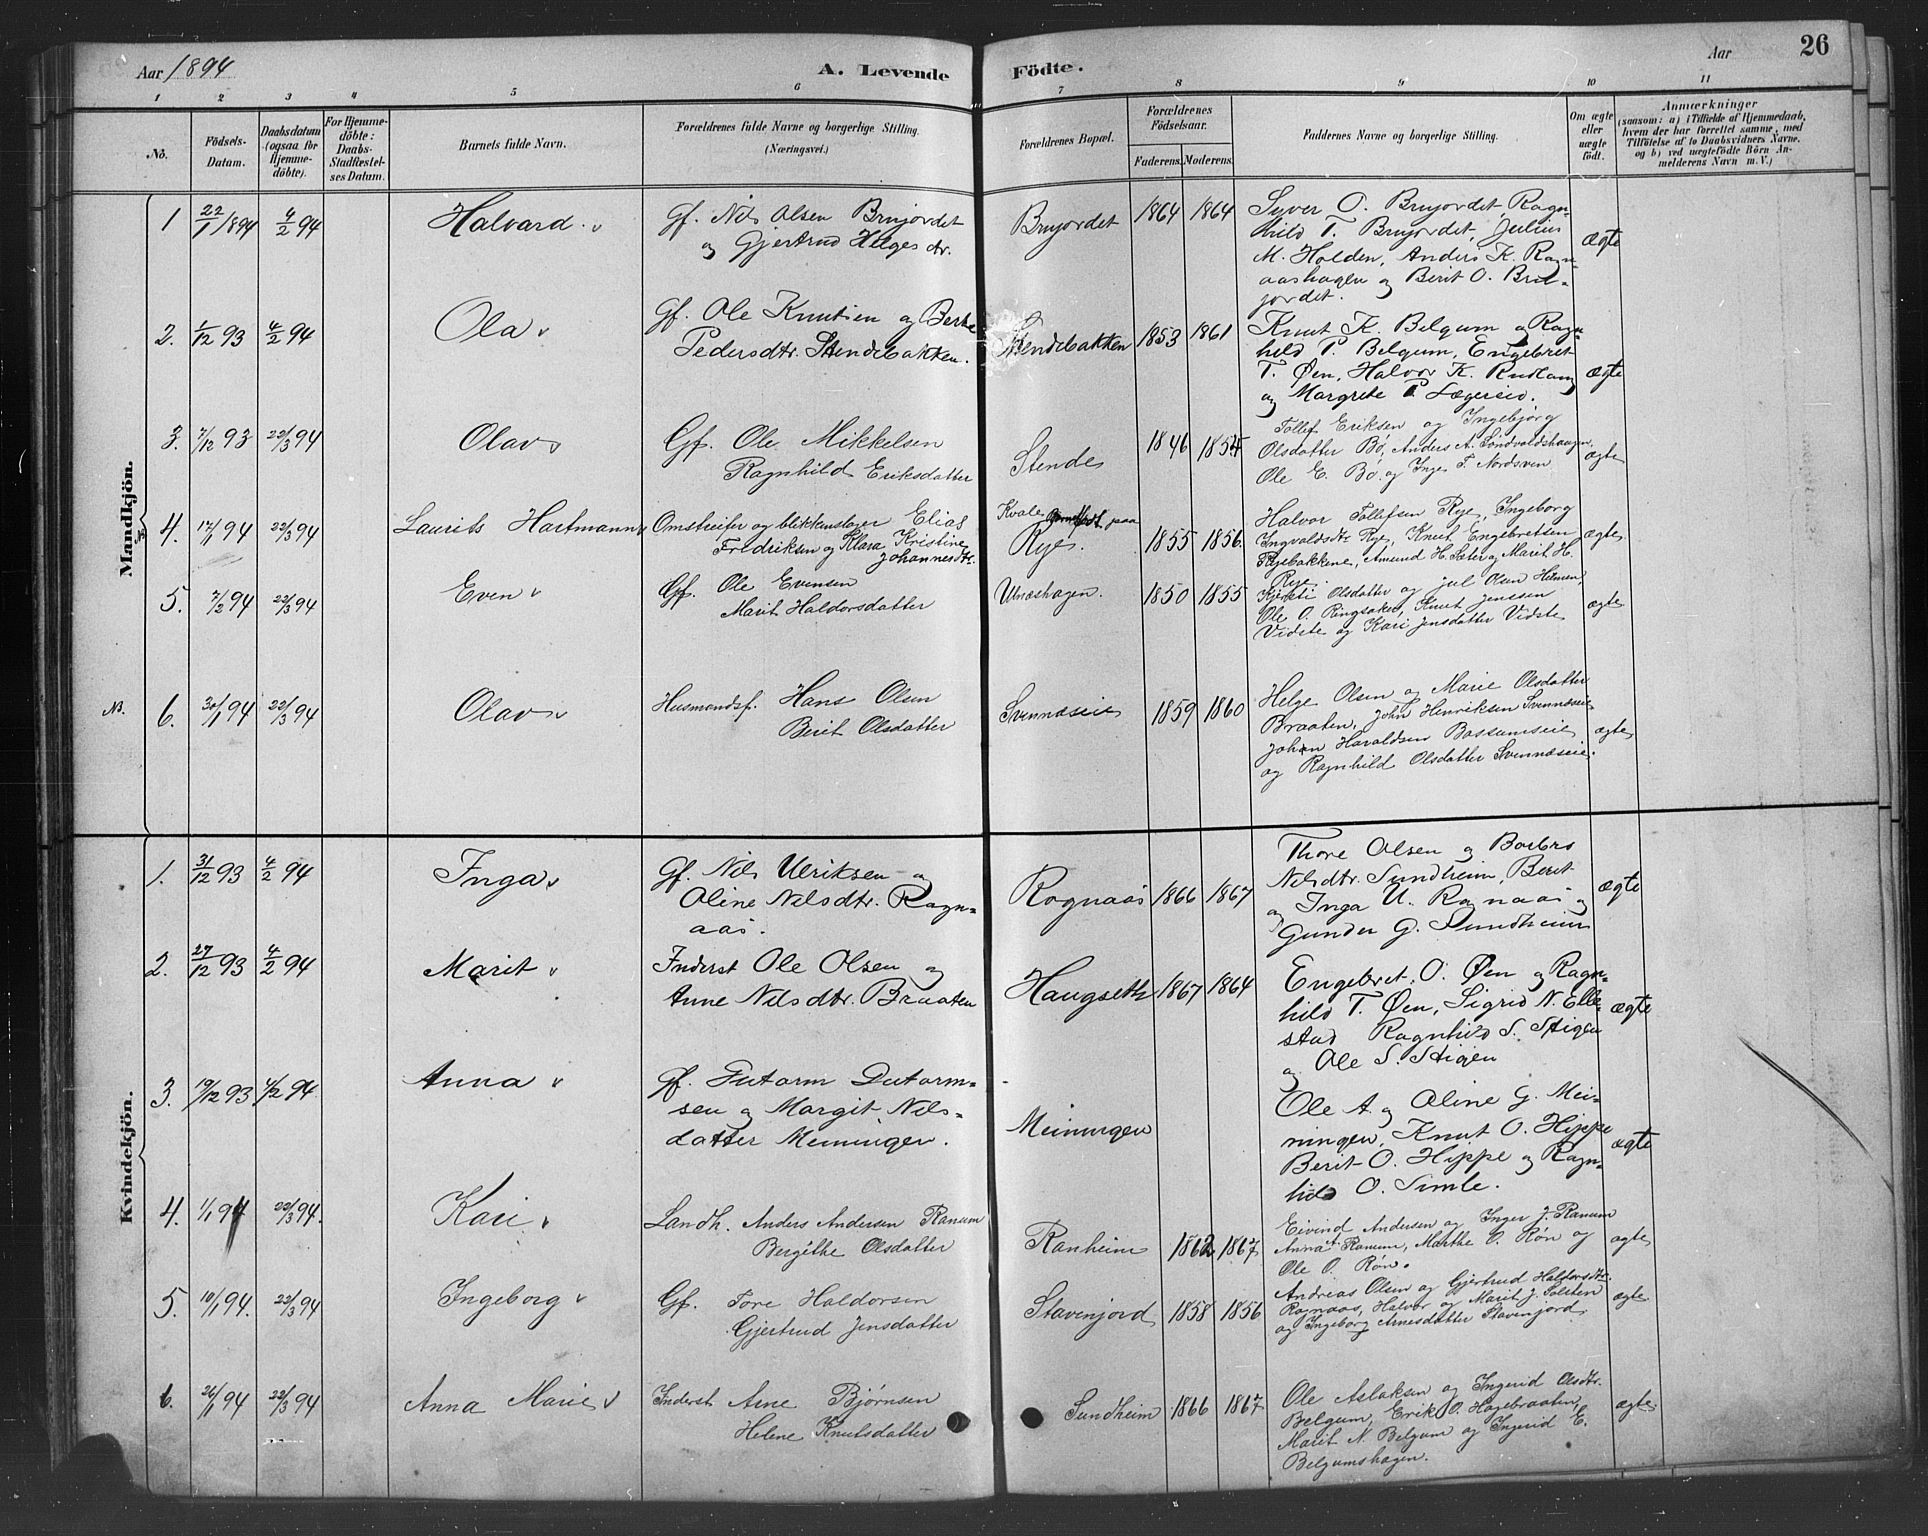 Aar 1894
A. Levende Födte.
Aar 26
1 2 3 4 5 6 7 8 9 10 11
No.
Födsels-
Datum.
Daabsdatum
(ogsaa for
Hjemme-
döbte).
For Hjemme-
döbte:
Daabs-
Stadfestel-
ses Datum.
Barnets fulde Navn.
Forældrenes fulde Navne og borgerlige Stilling.
(Næringsvei.)
Forældrenes Bopæl.
Forældrenes
Födselsaar.
Faderens. Moderens.
Faddernes Navne og borgerlige Stilling.
Om ægte
eller
uægte
födt.
Anmærkninger
(saasom: a) i Tilfælde af Hjemmedaab,
hvem der har forrettet samme, med
Tilföielse af to Daabsvidners Navne.
og b) ved uægtefödte Börn An-
melderens Navn m. V.)
Mandkjön.
1 22/1 1894 4/2 94 Halvard. Gf. Nils Olsen Brujordet
og Gjertrud Helges dtr.
Brujordet 1864 1864
Syver O. Brujordet, Ragn-
hild T. Brujordet, Julius
M. Holden, Anders K. Ragn-
aashagen og Berit O. Bru-
jordet.
ægte
2. 1/12 93 4/2 94 Ola Gf. Ole Knutsen og Berte
Pedersdtr. Stendebakken.
Stendebakken 1853 1861
Knut K. Belgum og Ragn-
hild P. Belgum, Engebret
T. Øen, Halvor K. Rudlang
og Margrete P. Lægereid.
ægte
3. 7/12 93 22/3 94 Olav Gf. Ole Mikkelsen
Ragnhild Eriksdatter
Stende 1846 1854
Tollef Eriksen og Ingebjörg
Olsdatter Bö, Anders A. Söndvoldshaugen,
Ole E. Bö og Inge T. Nordsven
ægte
4. 17/1 94 22/3 94 Laurits Hartmann Omstreifer og blikkenslager Elias
Fredriksen og Klara Kristine
Johannesdtr.
Kvale paa
Rye. 1855 1856.
Halvor Tollefsen Rye, Ingeborg
Ingvaldsdtr Rye, Knut Engebretsen
Ryebakkene, Amund H. Sæter og Marit H.
Rye.
ægte
5. 7/2 94 22/3 94 Even Gf. Ole Evensen
Marit Haldorsdatter
Ulnæshagen. 1850 1855
Kjersti Olsdatter og Jul Olsen Helmen,
Ole O. Ringsaker, Knut Jenssen
Vidste og Kari Jensdatter Vidste
ægte
NB. 6. 30/1 94 22/3 94 Olav Husmandsf. Hans Olsen
Berit Olsdatter
Svennæseie 1859 1860
Helge Olsen og Marie Olsdatter
Braaten, John Henriksen Svennæseie
Johan Haraldsen Bassumseie
og Ragnhild Olsdatter Svennæseie.
ægte
Kvindekjön.
1. 31/12 93 4/2 94 Inga Gf. Nils Ulriksen og
Oline Nilsdtr. Ragn-
aas.
Rognaas 1866 1867
Thore Olsen og Barbro
Nilsdtr. Sundheim, Berit
og Inga U. Ragnaas og
Gunder G. Sundheim
ægte
2. 27/12 93 4/2 94 Marit Inderst Ole Olsen og
Anne Nilsdtr. Braaten
Haugseth 1867 1864
Engebret O. Øen og Ragn-
hild T. Øen, Sigrid N. Elle-
stad Ragnhild S. Stigen
og Ole S. Stigen
ægte
3. 19/12 93 4/2 94 Anna Gf. Gutorm Gutorm-
sen og Margit Nils-
datter Meiningen.
Meiningen
Ole A. og Oline G. Mei-
ningen, Knut O. Hippe
Berit O. Hippe og Ragn-
hild O. Simle.
ægte
4. 1/1 94 22/3 94. Kari Landh. Anders Andersen Ranum
Bergithe Olsdatter
Ranheim 1862 1867
Eivind Andersen og Inger J. Ranum
Anna A. Ranum, Marthe O. Røn og
Ole O. Røn.
ægte
5. 10/1 94. 22/3 94 Ingeborg Gf. Tore Haldorsen
Gjertrud Jensdatter
Stavenjord 1858 1856
Andreas Olsen og Gjertrud Haldorsdtr.
Ragnaas, Halvor og Marit J. Solsten
og Ingeborg Arnesdatter Stavenjord.
ægte
6. 26/1 94 22/3 94 Anna Marie Inderst Arne Bjørnsen
Helene Knutsdatter
Sundheim 1866 1867
Ole Aslaksen og Ingerid Olsdtr.
Belgum, Erik O. Hagebraaten,
Marit N. Belgum og Ingerid E.
Belgumshagen.
ægte